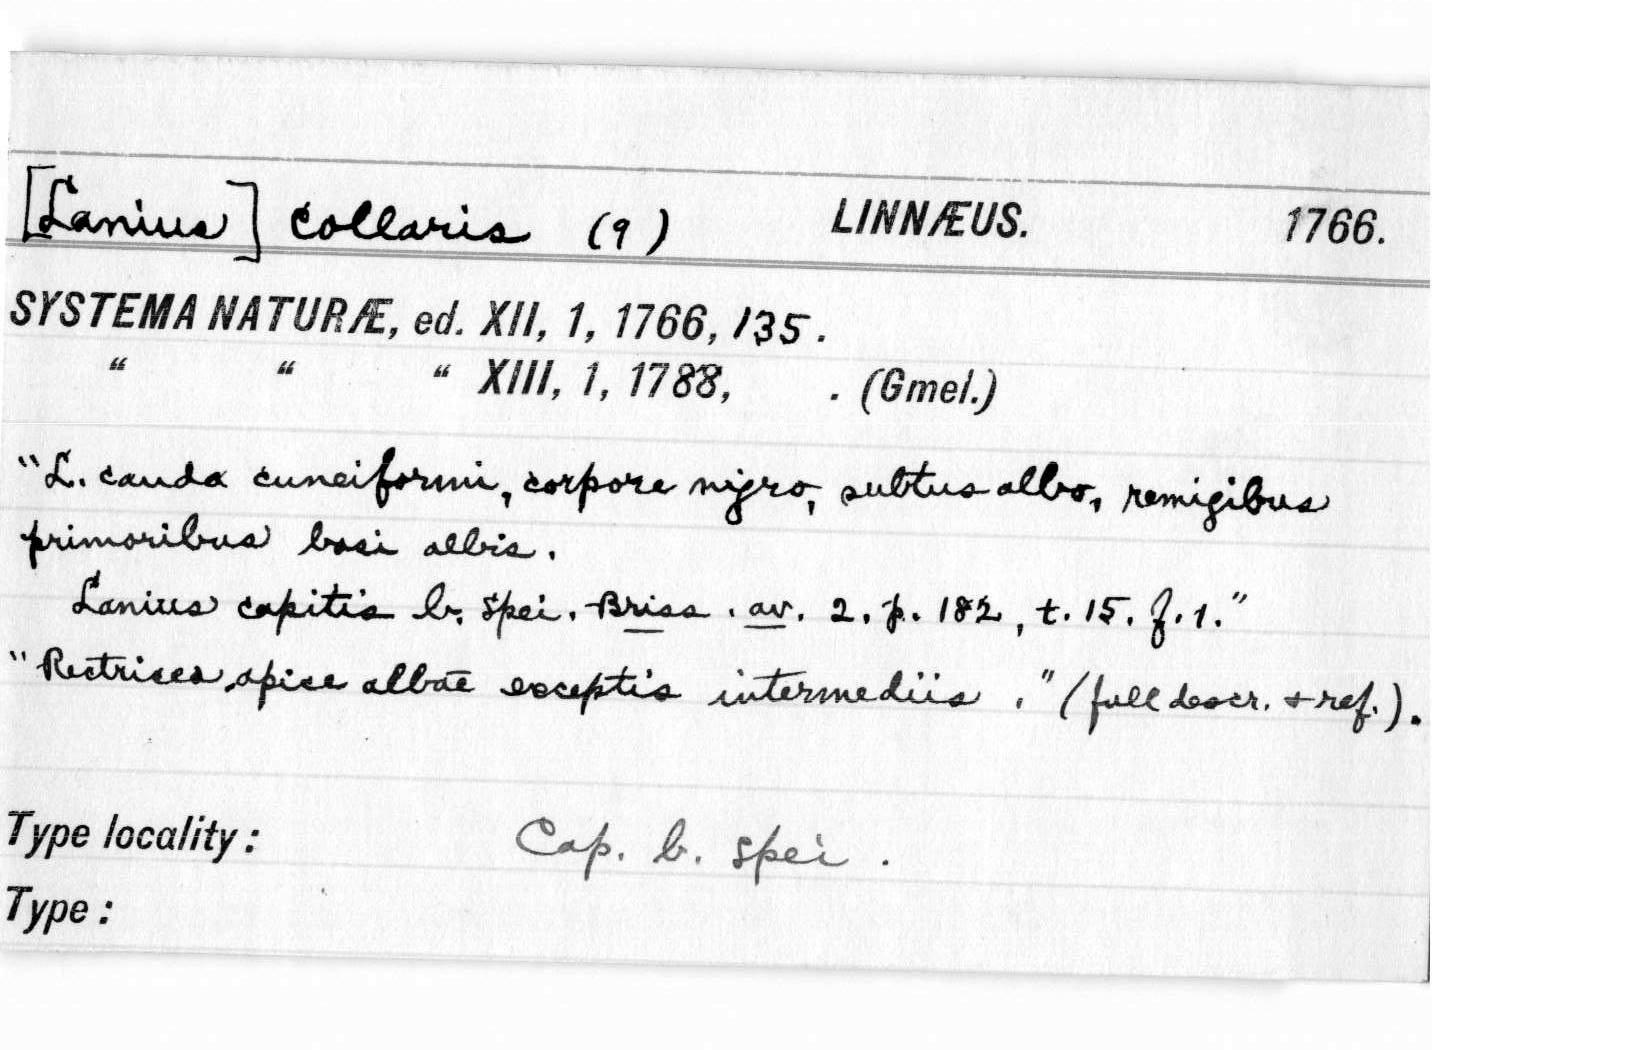 [Lanius] collaris (9) LINNÆUS. 1766.
SYSTEMA NATURÆ, ed. XII, 1, 1766, 135.
“ “ “ XIII, 1, 1788, . (Gmel.)
“L. cauda cuneiformi, corpore nigro, subtus albo, remigibus
primoribus basi albis.
Lanius capitis b. spei. Briss. av. 2. p. 182, t. 15. f. 1.”
“Rectrices apice albae exceptis intermediis.” (full descr. + ref.).
Type locality: Cap. b. spei.
Type: